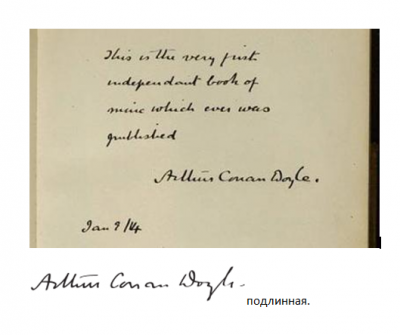 This is the very first
independant book of
mine which ever was
published
Arthur Conan Doyle.
Jan 9/14
Arthur Conan Doyle.
подлинная.